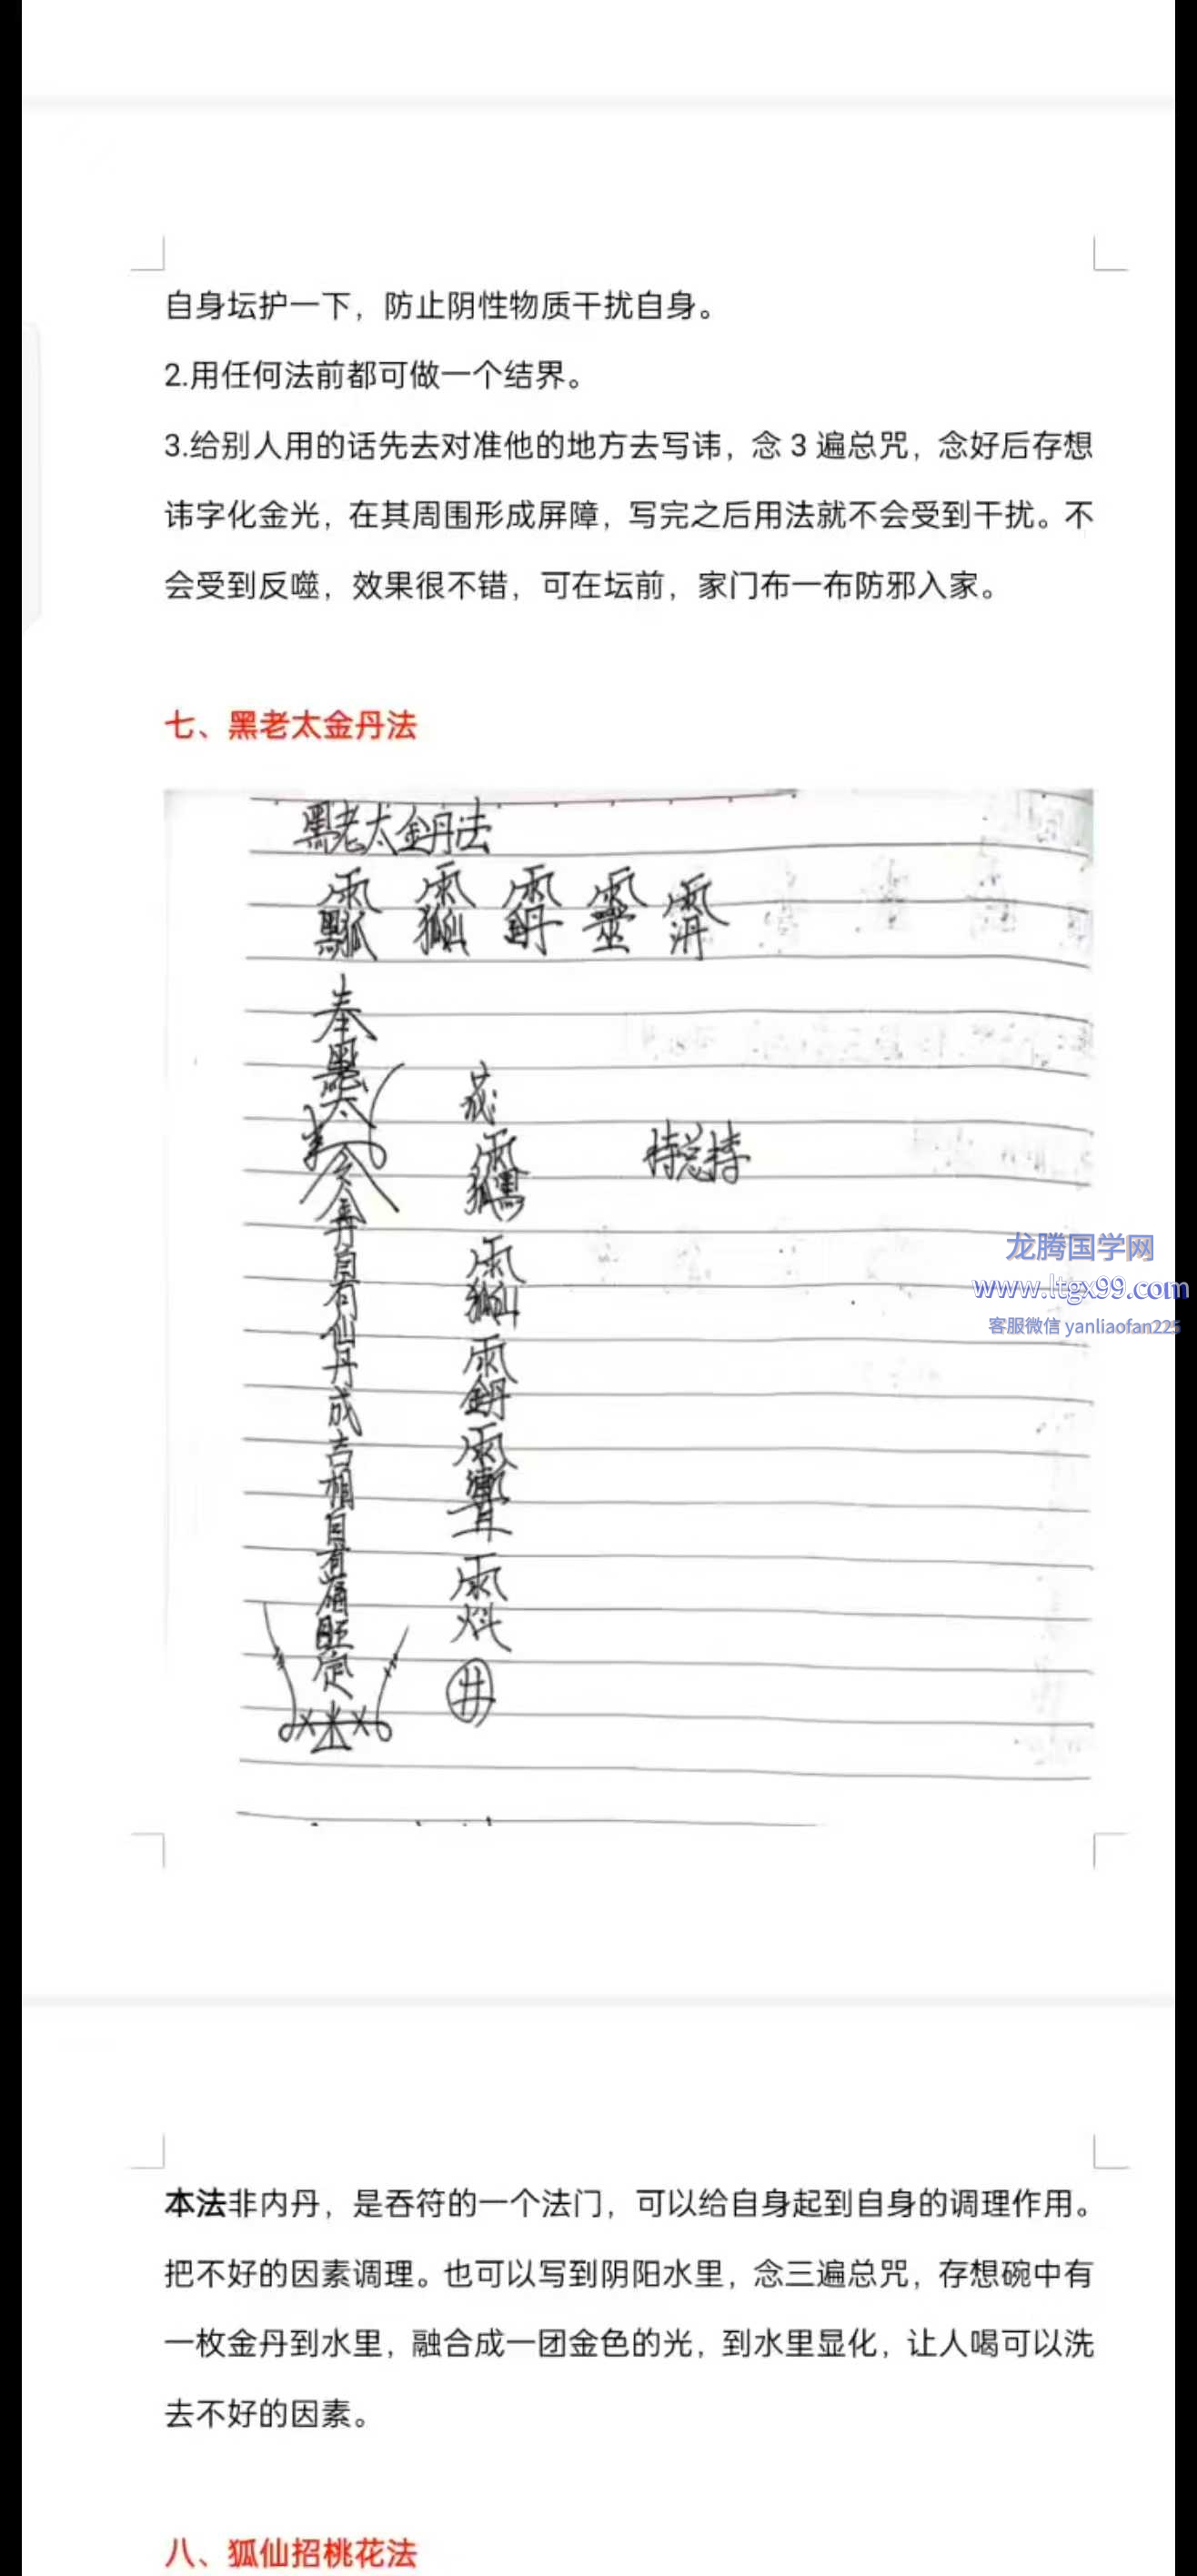 自身坛护一下，防止阴性物质干扰自身。
2.用任何法前都可做一个结界。
3.给别人用的话先去对准他的地方去写讳，念 3 遍总咒，念好后存想
讳字化金光，在其周围形成屏障，写完之后用法就不会受到干扰。不
会受到反噬，效果很不错，可在坛前，家门布一布防邪入家。
七、黑老太金丹法
黑老太金丹法
奉
自有仙丹成吉相自有
旺
井
龙腾国学网
www.ltgx99.com
客服微信 yanliaofan225
本法非内丹，是吞符的一个法门，可以给自身起到自身的调理作用。
把不好的因素调理。也可以写到阴阳水里，念三遍总咒，存想碗中有
一枚金丹到水里，融合成一团金色的光，到水里显化，让人喝可以洗
去不好的因素。
八、狐仙招桃花法